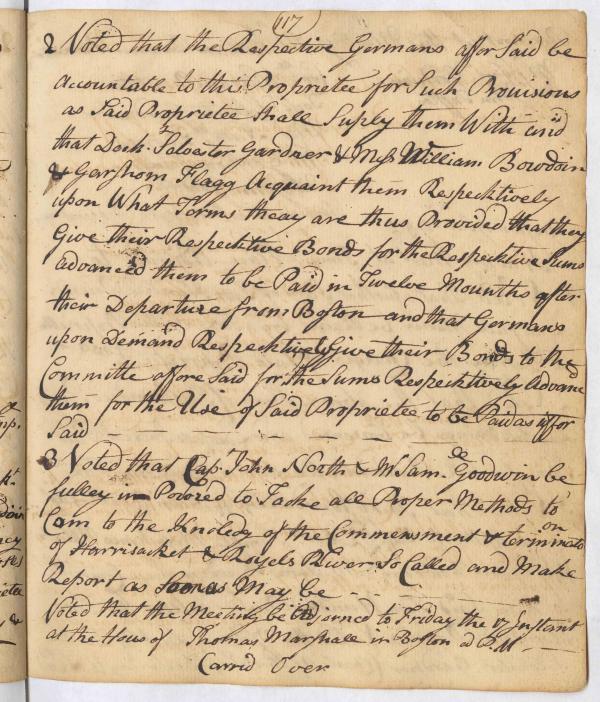 (117)
2 Voted that the Respective Germans affor Said be
Accountable to this Proprietee for Such Provisions
as Said Proprietee Shall Suply them With and
that Doctr. Salvester Gardner & Mssr. William Bowdoin
& Gershom Flagg Acquaint them Respecktively
upon What Terms theay are thus Provided that they
Give their Respecktive Bonds for the Respecktive Sums
Advanced them to be Paid in Twelve Mounths after
their Departure from Boston and that Germans
upon Demand Respecktively Give their Bonds to the
Committe affore Said for the Sums Respecktively Advanc
them for the Use of Said Proprietee to be Paid as affor
Said
3 Voted that Capt. John North & Mr. Sam. Goodwin be
fulley in Powored to Tacke all Proper Methods to
Com to the Knoledg of the Commensment & terminatoon
of Harrisacket & Royels River So Called and Make
Report as Soon as May be
Voted that the Meeting be Adjorned to Friday the Instant
at the Hous of Thomas Marshall in Boston P.M
Carrid Over